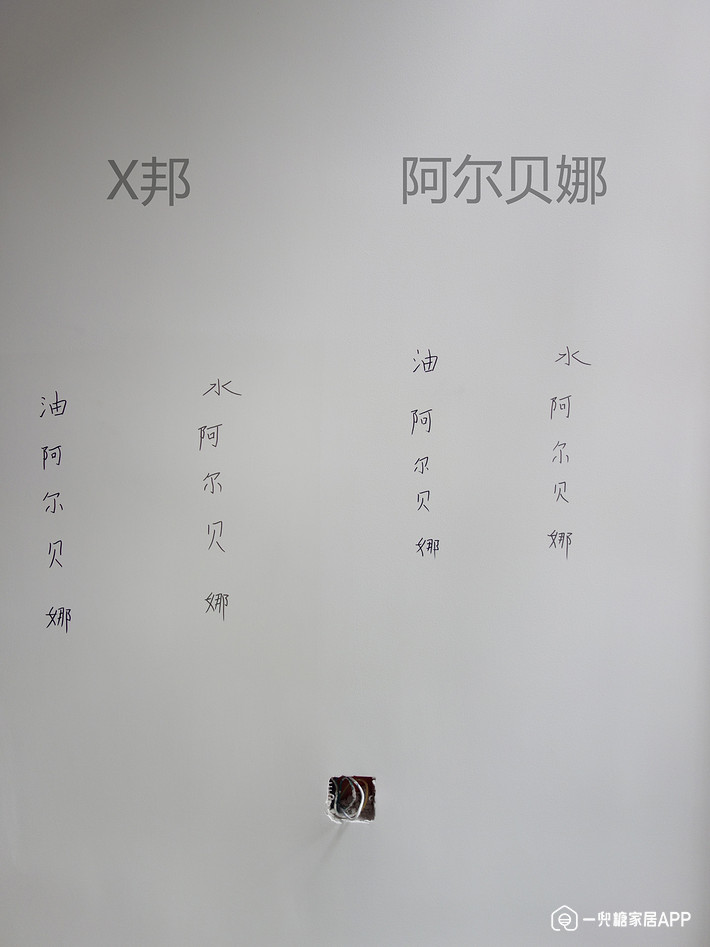 X邦
阿尔贝娜
油阿尔贝娜
水阿尔贝娜
油阿尔贝娜
水阿尔贝娜
一兜糖家居APP